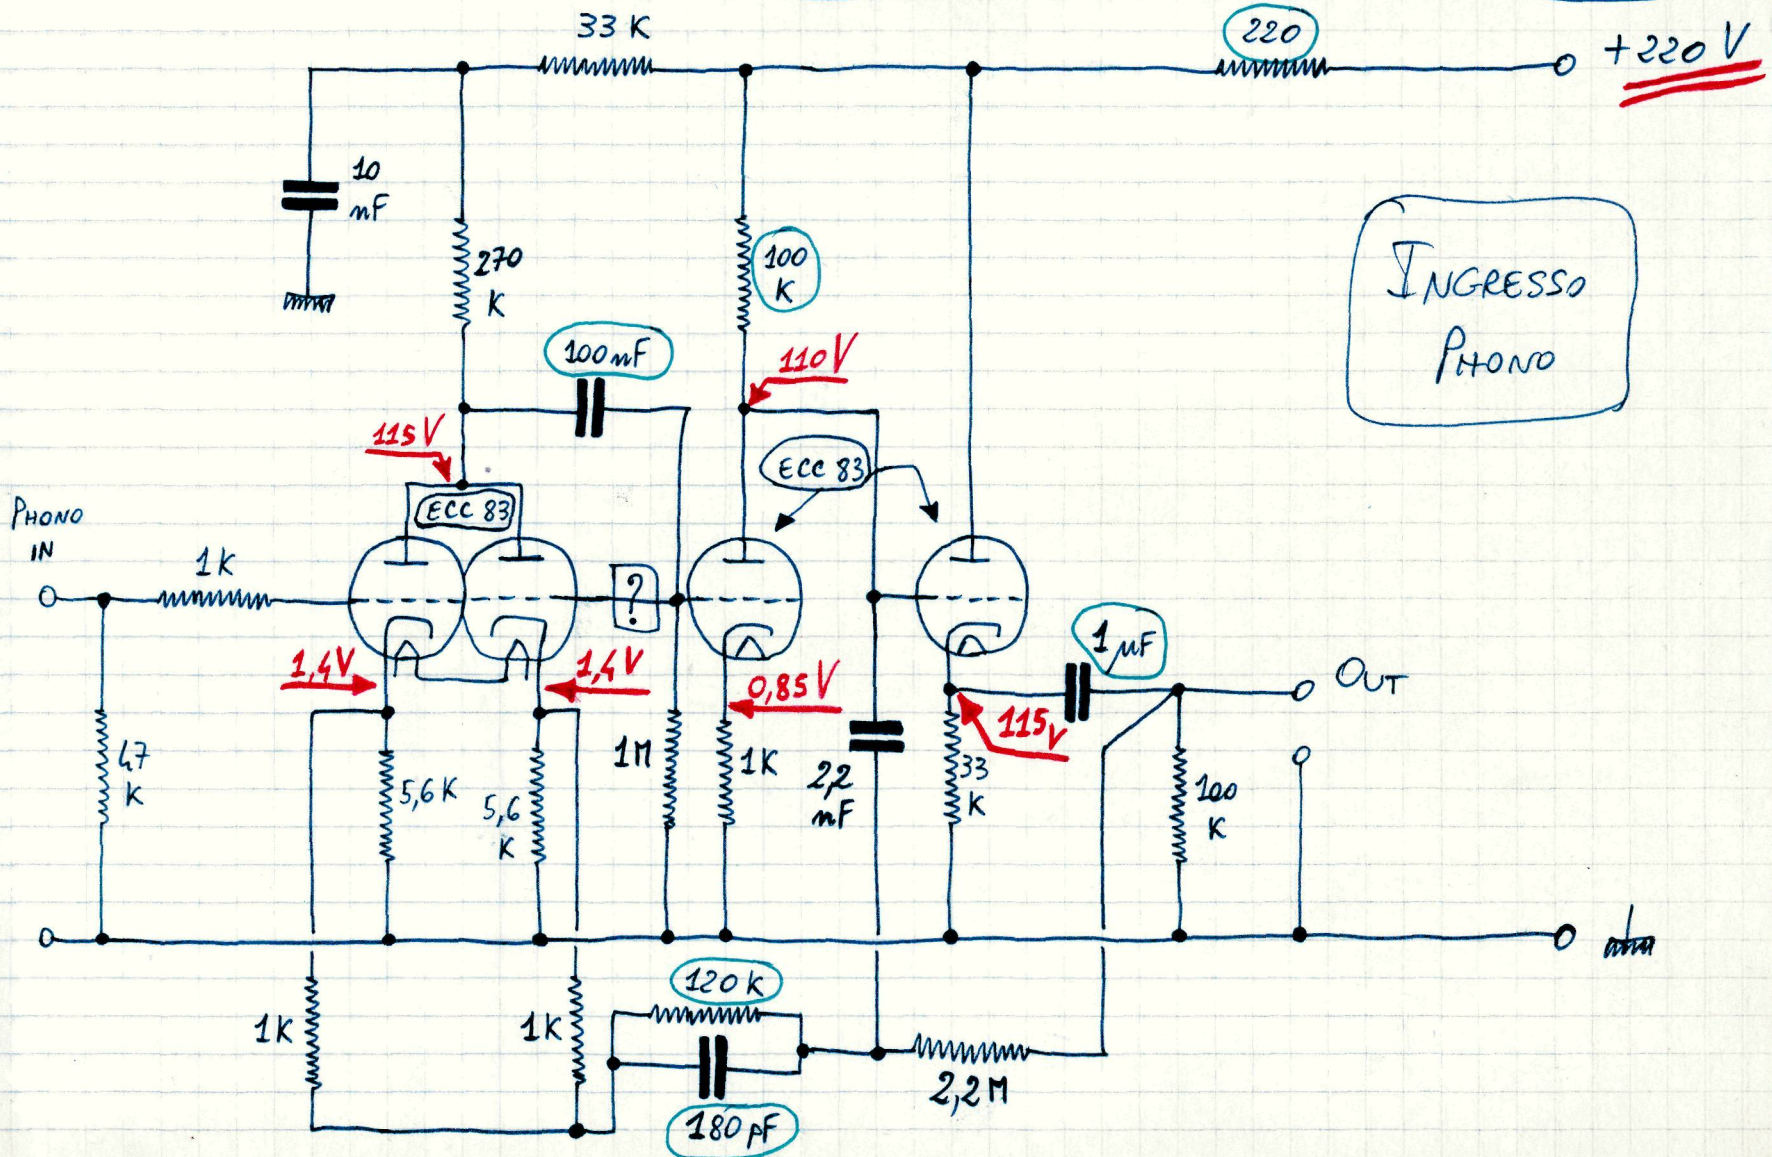 33 K
220
+220 V
10
nF
270
K
100
K
INGRESSO
PHONO
100nF
110V
115V
ECC 83
ECC 83
PHONO
IN
1K
?
1 µF
OUT
1,4V
1,4V
0,85V
115V
47
K
5,6K
5,6
K
1M
1K
2,2
nF
33
K
100
K
120K
1K
1K
2,2M
180pF